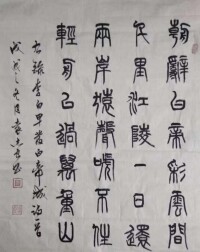 朝辭白帝彩雲間
千里江陵一日還
兩岸猿聲啼不住
輕舟已過萬重山
右錄李白早發白帝城詩一首